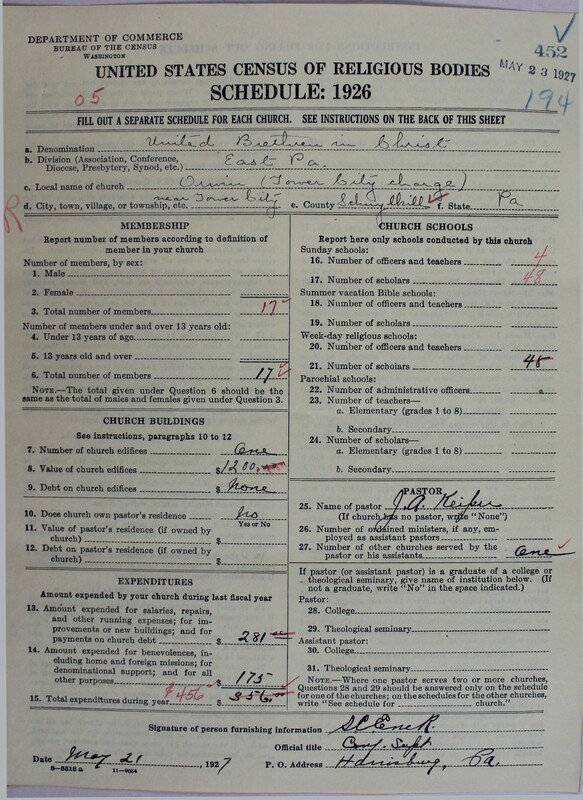 DEPARTMENT OF COMMERCE
BUREAU OF THE CENSUS
WASHINGTON
452
MAY 23 1927
194
05
UNITED STATES CENSUS OF RELIGIOUS BODIES
SCHEDULE: 1926
FILL OUT A SEPARATE SCHEDULE FOR EACH CHURCH. SEE INSTRUCTIONS ON THE BACK OF THIS SHEET
a. Denomination United Brethren in Christ
b. Division (Association, Conference, Diocese, Presbytery, Synod, etc.) East Pa.
c. Local name of church (Tower City charge)
d. City, town, village, or township, etc. near Tower City e. County Schuylkill f. State Pa
R
MEMBERSHIP
Report number of members according to definition of member in your church
Number of members, by sex:
1. Male
2. Female
3. Total number of members 17
Number of members under and over 13 years old:
4. Under 13 years of age
5. 13 years old and over
6. Total number of members 17
NOTE.—The total given under Question 6 should be the same as the total of males and females given under Question 3.
CHURCH BUILDINGS
See instructions, paragraphs 10 to 12
7. Number of church edifices One
8. Value of church edifices $1200.00
9. Debt on church edifices $ None
10. Does church own pastor's residence? No
Yes or No
11. Value of pastor's residence (if owned by church) $
12. Debt on pastor's residence (if owned by church) $
EXPENDITURES
Amount expended by your church during last fiscal year
13. Amount expended for salaries, repairs, and other running expenses; for improvements or new buildings; and for payments on church debt $ 281
14. Amount expended for benevolences, including home and foreign missions; for denominational support; and for all other purposes $ 175
15. Total expenditures during year $456 $ 356.00
CHURCH SCHOOLS
Report here only schools conducted by this church
Sunday schools:
16. Number of officers and teachers 4
17. Number of scholars 48
Summer vacation Bible schools:
18. Number of officers and teachers
19. Number of scholars
Week-day religious schools:
20. Number of officers and teachers
21. Number of scholars 48
Parochial schools:
22. Number of administrative officers
23. Number of teachers—
a. Elementary (grades 1 to 8)
b. Secondary
24. Number of scholars—
a. Elementary (grades 1 to 8)
b. Secondary
PASTOR
25. Name of pastor J. A. Keiper
(If church has no pastor, write "None")
26. Number of ordained ministers, if any, employed as assistant pastors
27. Number of other churches served by the pastor or his assistants One
If pastor (or assistant pastor) is a graduate of a college or theological seminary, give name of institution below. (If not a graduate, write "No" in the space indicated.)
Pastor:
28. College
29. Theological seminary
Assistant pastor:
30. College
31. Theological seminary
NOTE.—Where one pastor serves two or more churches, Questions 28 and 29 should be answered only on the schedule for one of the churches; on the schedules for the other churches, write "See schedule for church."
Signature of person furnishing information S C Enck
Official title Conf. Supt
Date May 21, 1927 P. O. Address Harrisburg, Pa.
8—5515 a 11—9034